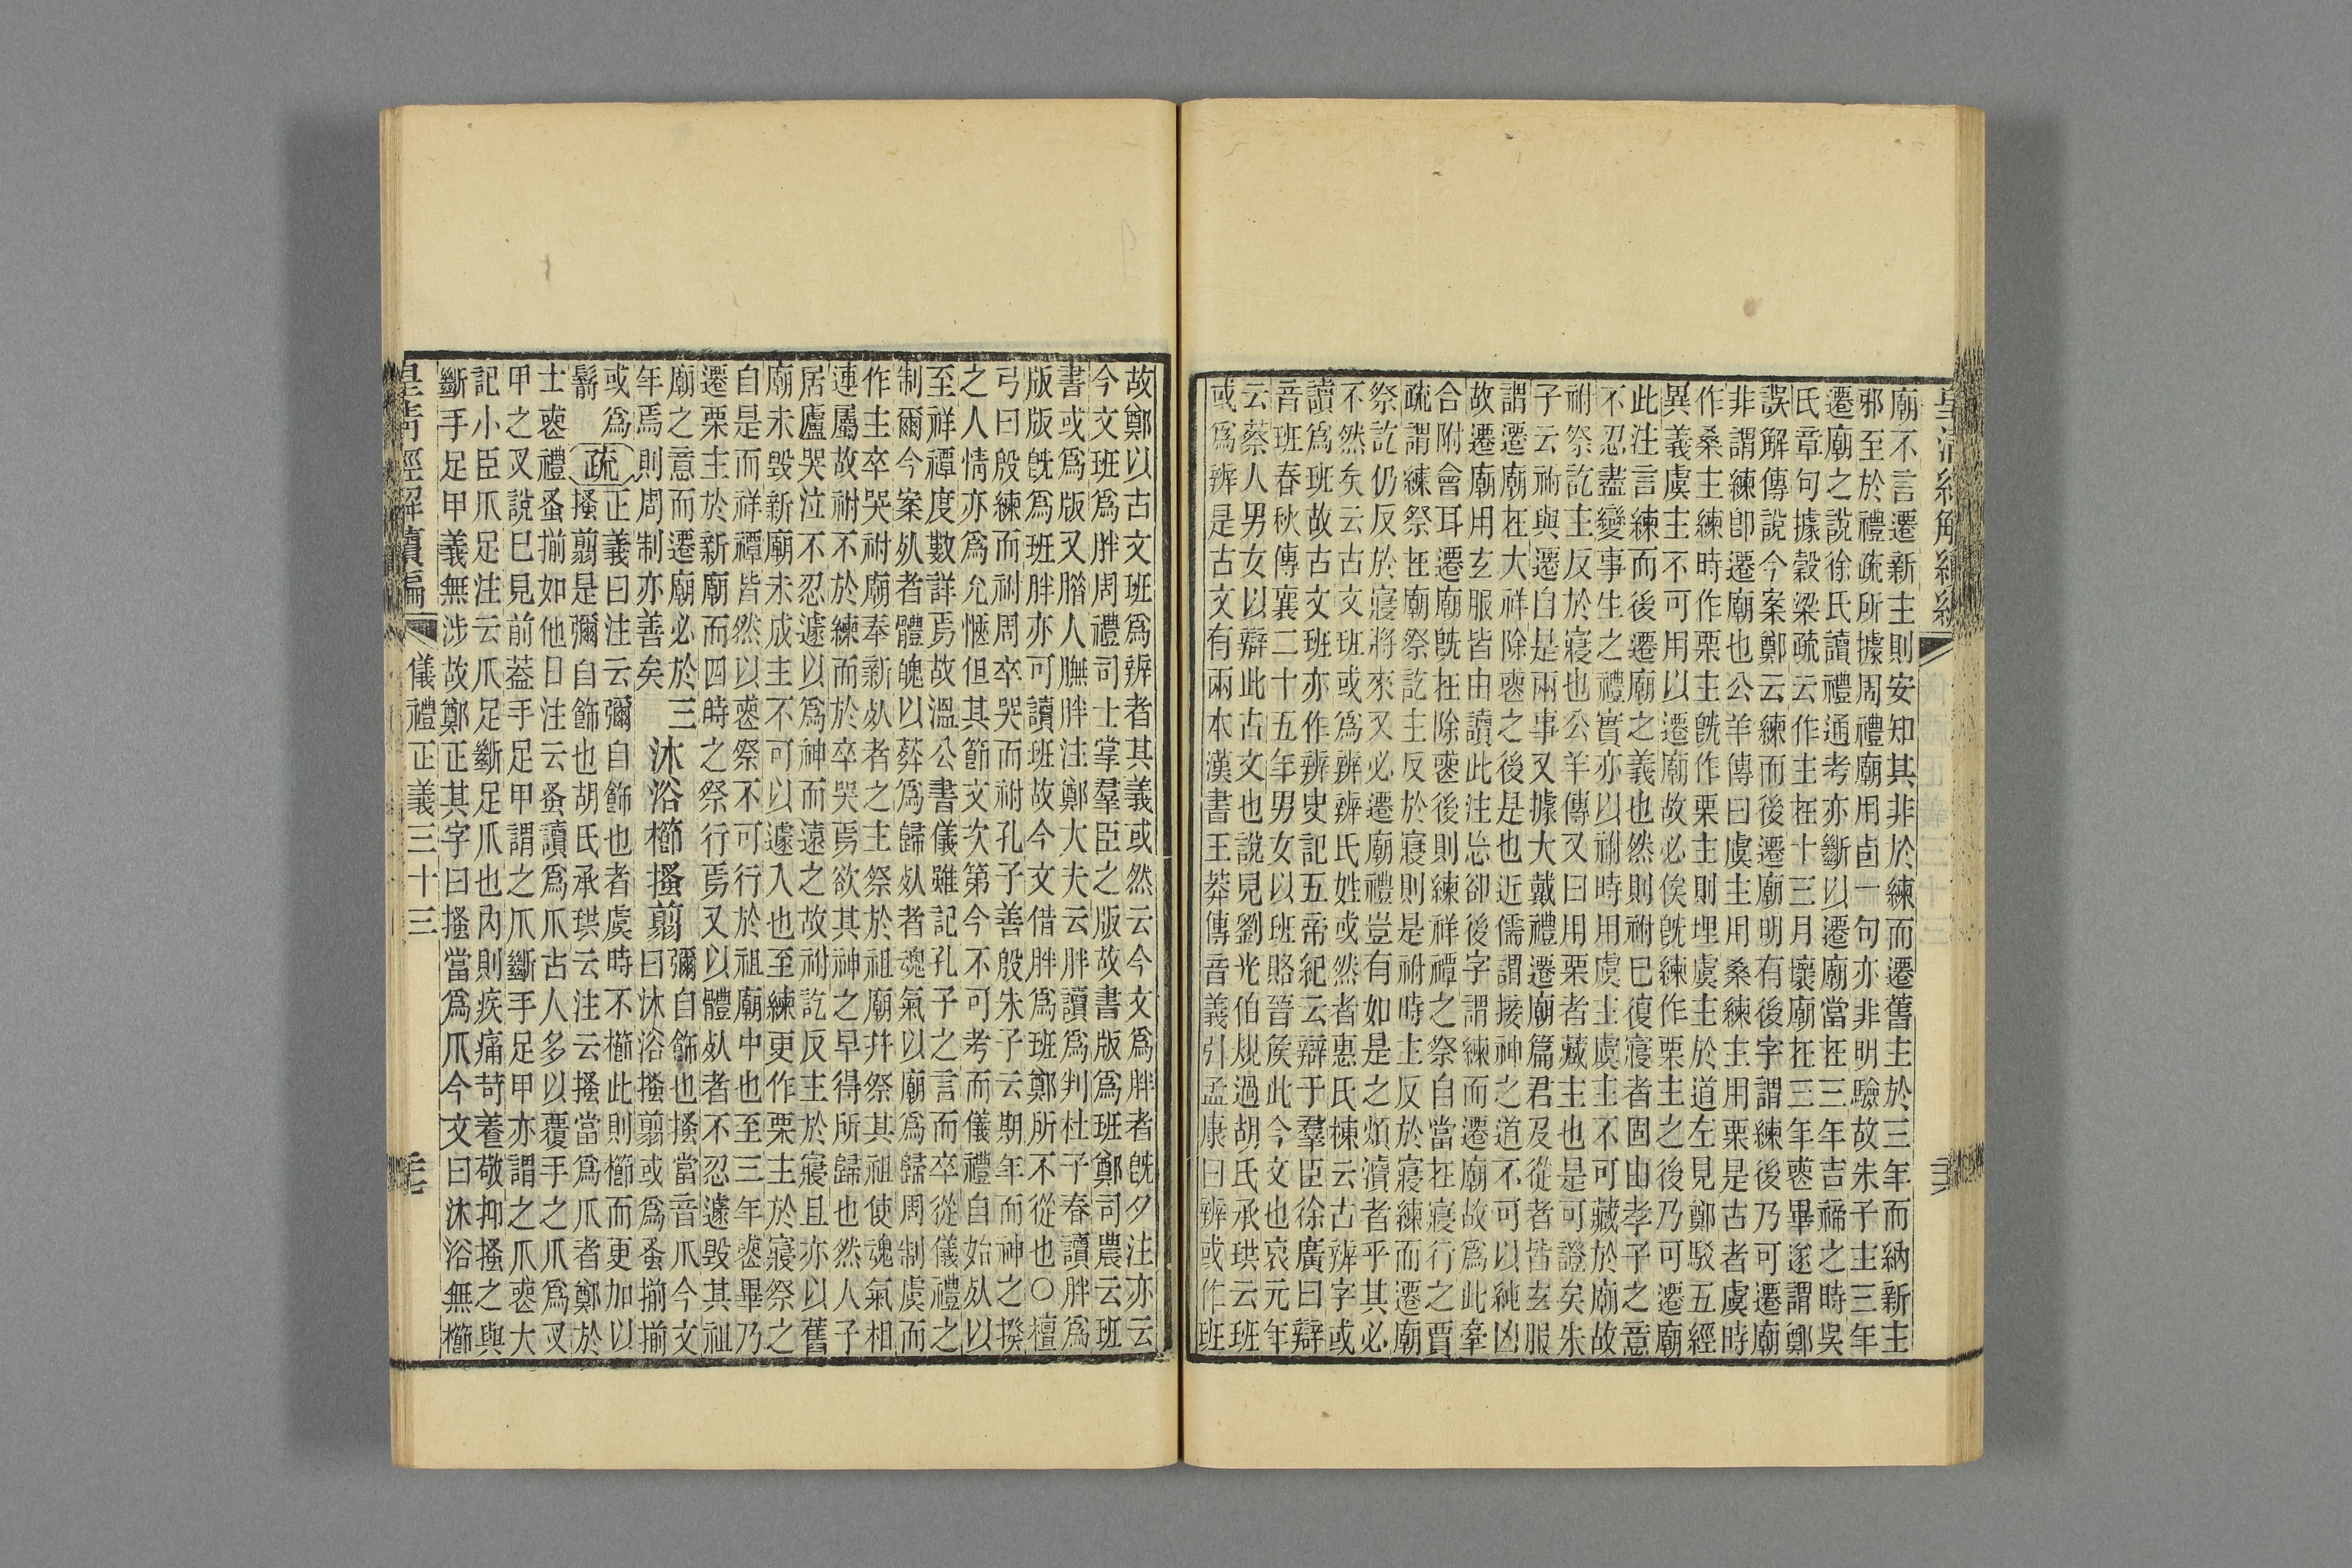 廟不言遷新主則安知其非於練而遷舊主於三年而納新主
邪至於禮疏所據周禮廟用卣一句亦非明驗故朱子主三年
遷廟之說徐氏讀禮通考亦斷以遷廟當在三年吉禘之時吳
氏章句據穀梁疏云作主在十三月壞廟在三年喪畢遂謂鄭
誤解傳說今案鄭云練而後遷廟明有後字謂練後乃可遷廟
非謂練卽遷廟也公羊傳曰虞主用桑練主用栗是古者虞時
作桑主練時作栗主旣作栗主則埋虞主於道左見鄭駁五經
異義虞主不可用以遷廟故必俟旣練作栗主之後乃可遷廟
此注言練而後遷廟之義也然則祔已復寢者固由孝子之意
不忍盡變事生之禮實亦以祔時用虞主虞主不可藏於廟故
祔祭訖主反於寢也公羊傳又曰用栗者藏主也是可證矣朱
子云祔與遷自是兩事又據大戴禮遷廟篇君及從者皆玄服
謂遷廟在大祥除喪之後是也近儒謂接神之道不可以純凶
故遷廟用玄服皆由讀此注忩卻後字謂練而遷廟故爲此牽
合附會耳遷廟旣在除喪後則練祥禫之祭自當在寢行之賈
疏謂練祭在廟祭訖主反於寢則是祔時主反於寢練而遷廟
祭訖仍反於寢將來又必遷廟禮豈有如是之煩瀆者乎其必
不然矣云古文班或爲辨辨氏姓或然者惠氏棟云古辨字或
讀爲班故古文班亦作辨史記五帝紀云辯于羣臣徐廣曰辯
音班春秋傳襄二十五年男女以班賂晉矦此今文也哀元年
云蔡人男女以辯此古文也說見劉光伯規過胡氏承珙云班
或爲辨是古文有兩本漢書王莽傳音義引孟康曰辨或作班
故鄭以古文班爲辨者其義或然云今文爲胖者旣夕注亦云
今文班爲胖周禮司士掌羣臣之版故書版爲班鄭司農云班
書或爲版又腊人膴胖注鄭大夫云胖讀爲判杜子春讀胖爲
版版旣爲班胖亦可讀班故今文借胖爲班鄭所不從也○檀
弓曰殷練而祔周卒哭而祔孔子善殷朱子云期年而神之揆
之人情亦爲允愜但其節文次第今不可考而儀禮自始死以
至祥禫度數詳焉故溫公書儀雖記孔子之言而卒從儀禮之
制爾今案死者體魄以葬爲歸死者魂氣以廟爲歸周制虞而
作主卒哭祔廟奉新死者之主祭於祖廟并祭其祖使魂氣相
連屬故祔不於練而於卒哭焉欲其神之早得所歸也然人子
居廬哭泣不忍遽以爲神而遠之故祔訖反主於寢且亦以舊
廟未毀新廟未成主不可以遽入也至練更作栗主於寢祭之
自是而祥禫皆然以喪祭不可行於祖廟中也至三年喪畢乃
遷栗主於新廟而四時之祭行焉又以體死者不忍遽毀其祖
廟之意而遷廟必於三
年焉則周制亦善矣
沐浴櫛搔翦
彌自飾也搔當音爪今文
曰沐浴搔翦或爲蚤揃揃
或爲
鬋
疏
正義曰注云彌自飾也者虞時不櫛此則櫛而更加以
搔翦是彌自飾也胡氏承珙云注云搔當爲爪者鄭於
士喪禮蚤揃如他日注云蚤讀爲爪古人多以覆手之爪爲叉
甲之叉說已見前蓋手足甲謂之爪斷手足甲亦謂之爪喪大
記小臣爪足注云爪足斷足爪也內則疾痛苛養敬抑搔之與
斷手足甲義無涉故鄭正其字曰搔當爲爪今文曰沐浴無櫛
皇清經解續編
儀禮正義三十三